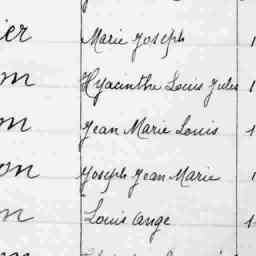 ier Marie Joseph 1
on Hyacinthe Louis Jules 1
on Jean Marie Louis 1
on Joseph Jean Marie 1
on Louis Ange 1